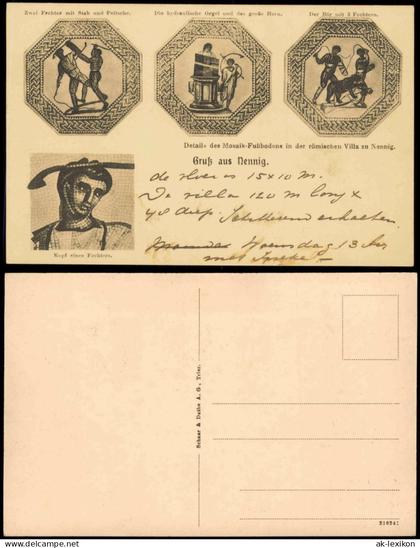 Zwei Fechter mit Stab und Peitsche.
Die hydraulische Orgel und das große Horn.
Der Bär mit 3 Fechtern.
Details des Mosaik-Fußbodens in der römischen Villa zu Nennig.
Gruß aus Nennig.
de vloer is 15 x 10 m.
De villa 120 m lang x
40 diep.
Woensdag 13
met
Kopf eines Fechters.
Schaar & Dathe A. G., Trier.
delcampe.net
ak-lexikon